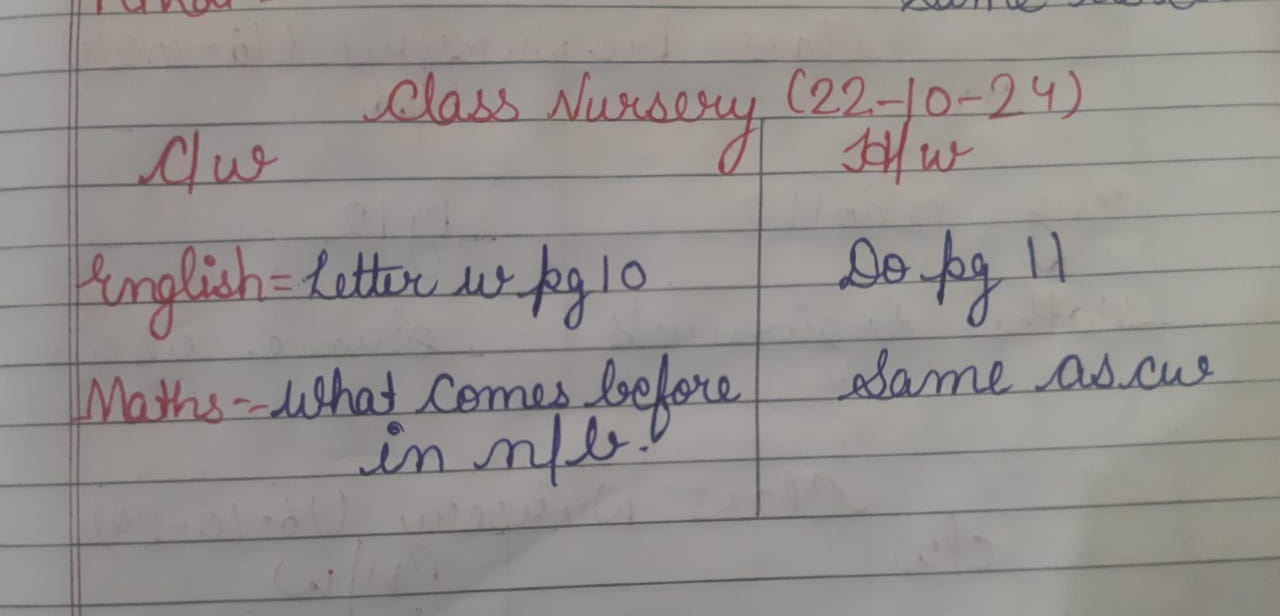 Class Nursery (22-10-24)
C/w H/w
English = Letter w pg 10 Do pg 11
Maths - What comes before Same as cw
in n/b.